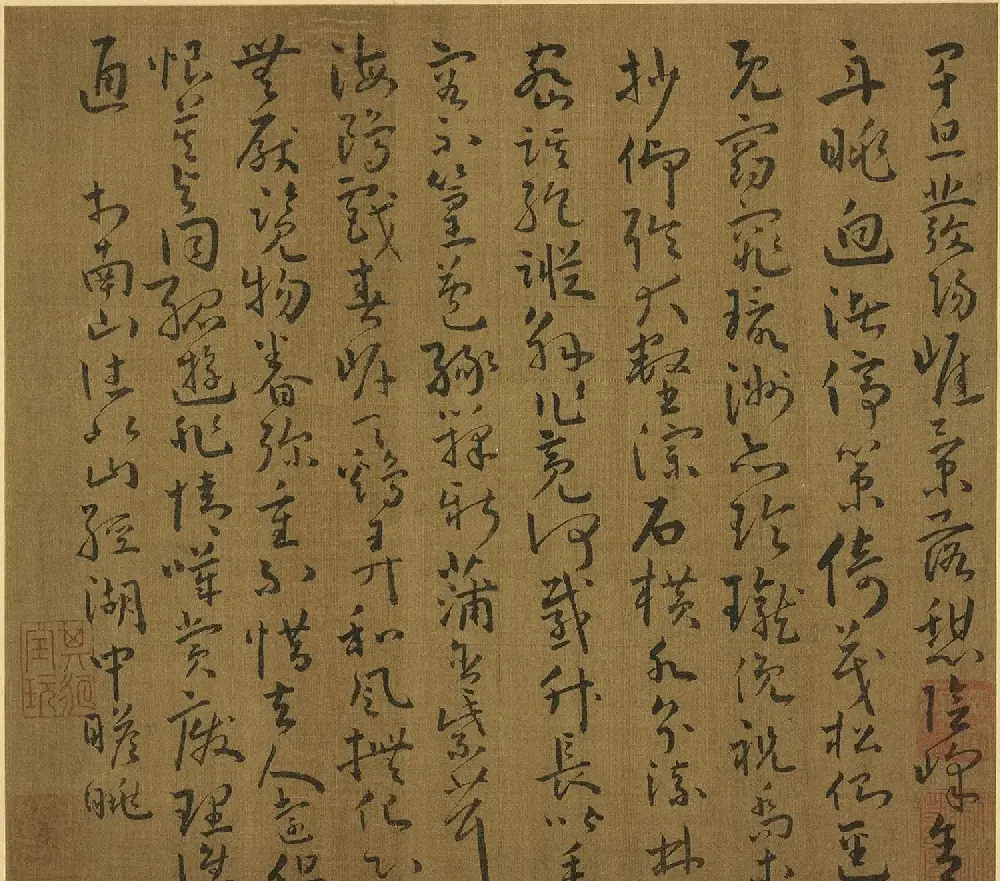 早旦發陽崖景落憩陰峰舍
舟眺迥渚停策倚茂松側逕
既窈窕環洲亦玲瓏俛視喬木
抄仰聆大壑淙石橫水分流林
密蹊絕蹤解作竟何感升長皆丰
容初篁苞綠籜新蒲含紫茸
海鷗戲春岸天雞弄和風撫化心
無厭覽物眷彌重不惜去人遠但
恨莫與同孤遊非情嘆賞廢理誰
通 於南山往北山經湖中瞻眺